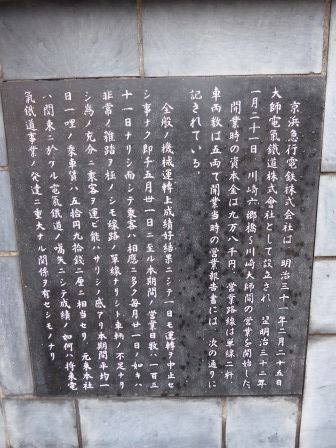 京浜急行電鉄株式会社は、明治三十一年二月二十五日
大師電気鐵道株式会社として設立され、翌明治三十二年
一月二十一日、川崎六郷橋〜川崎大師間の営業を開始した。
開業時の資本金は九万八千円、営業路線は単線二粁、
車両数は五両で開業当時の営業報告書には、次の通りに
記されている。
全般ノ機械運轉上成績好結果ニシテ一日モ運轉ヲ中止セ
シ事ナク即チ五月廿一日ニ至ル本期間ノ営業日数ハ一百二
十一日ナリシ而シテ乗客ハ相應ニ多ク毎月廿一日ノ如キハ
非常ノ雑踏ヲ極ノシモ線路ノ單線ナリシト車輌ノ不足ナリ
シ為ノ充分ニ乗客ヲ運ビ能ハサリシノ感アリ本期間平均一
日一哩ノ乗車賃ハ五拾円九拾銭二厘ニ相当セリ 元来本社
ハ関東ニ於ケル電氣鐵道ノ嚆矢ニシテ成績ノ如何ハ将来電
氣鐵道事業ノ発達ニ重大ナル関係ヲ有セシモノナリ